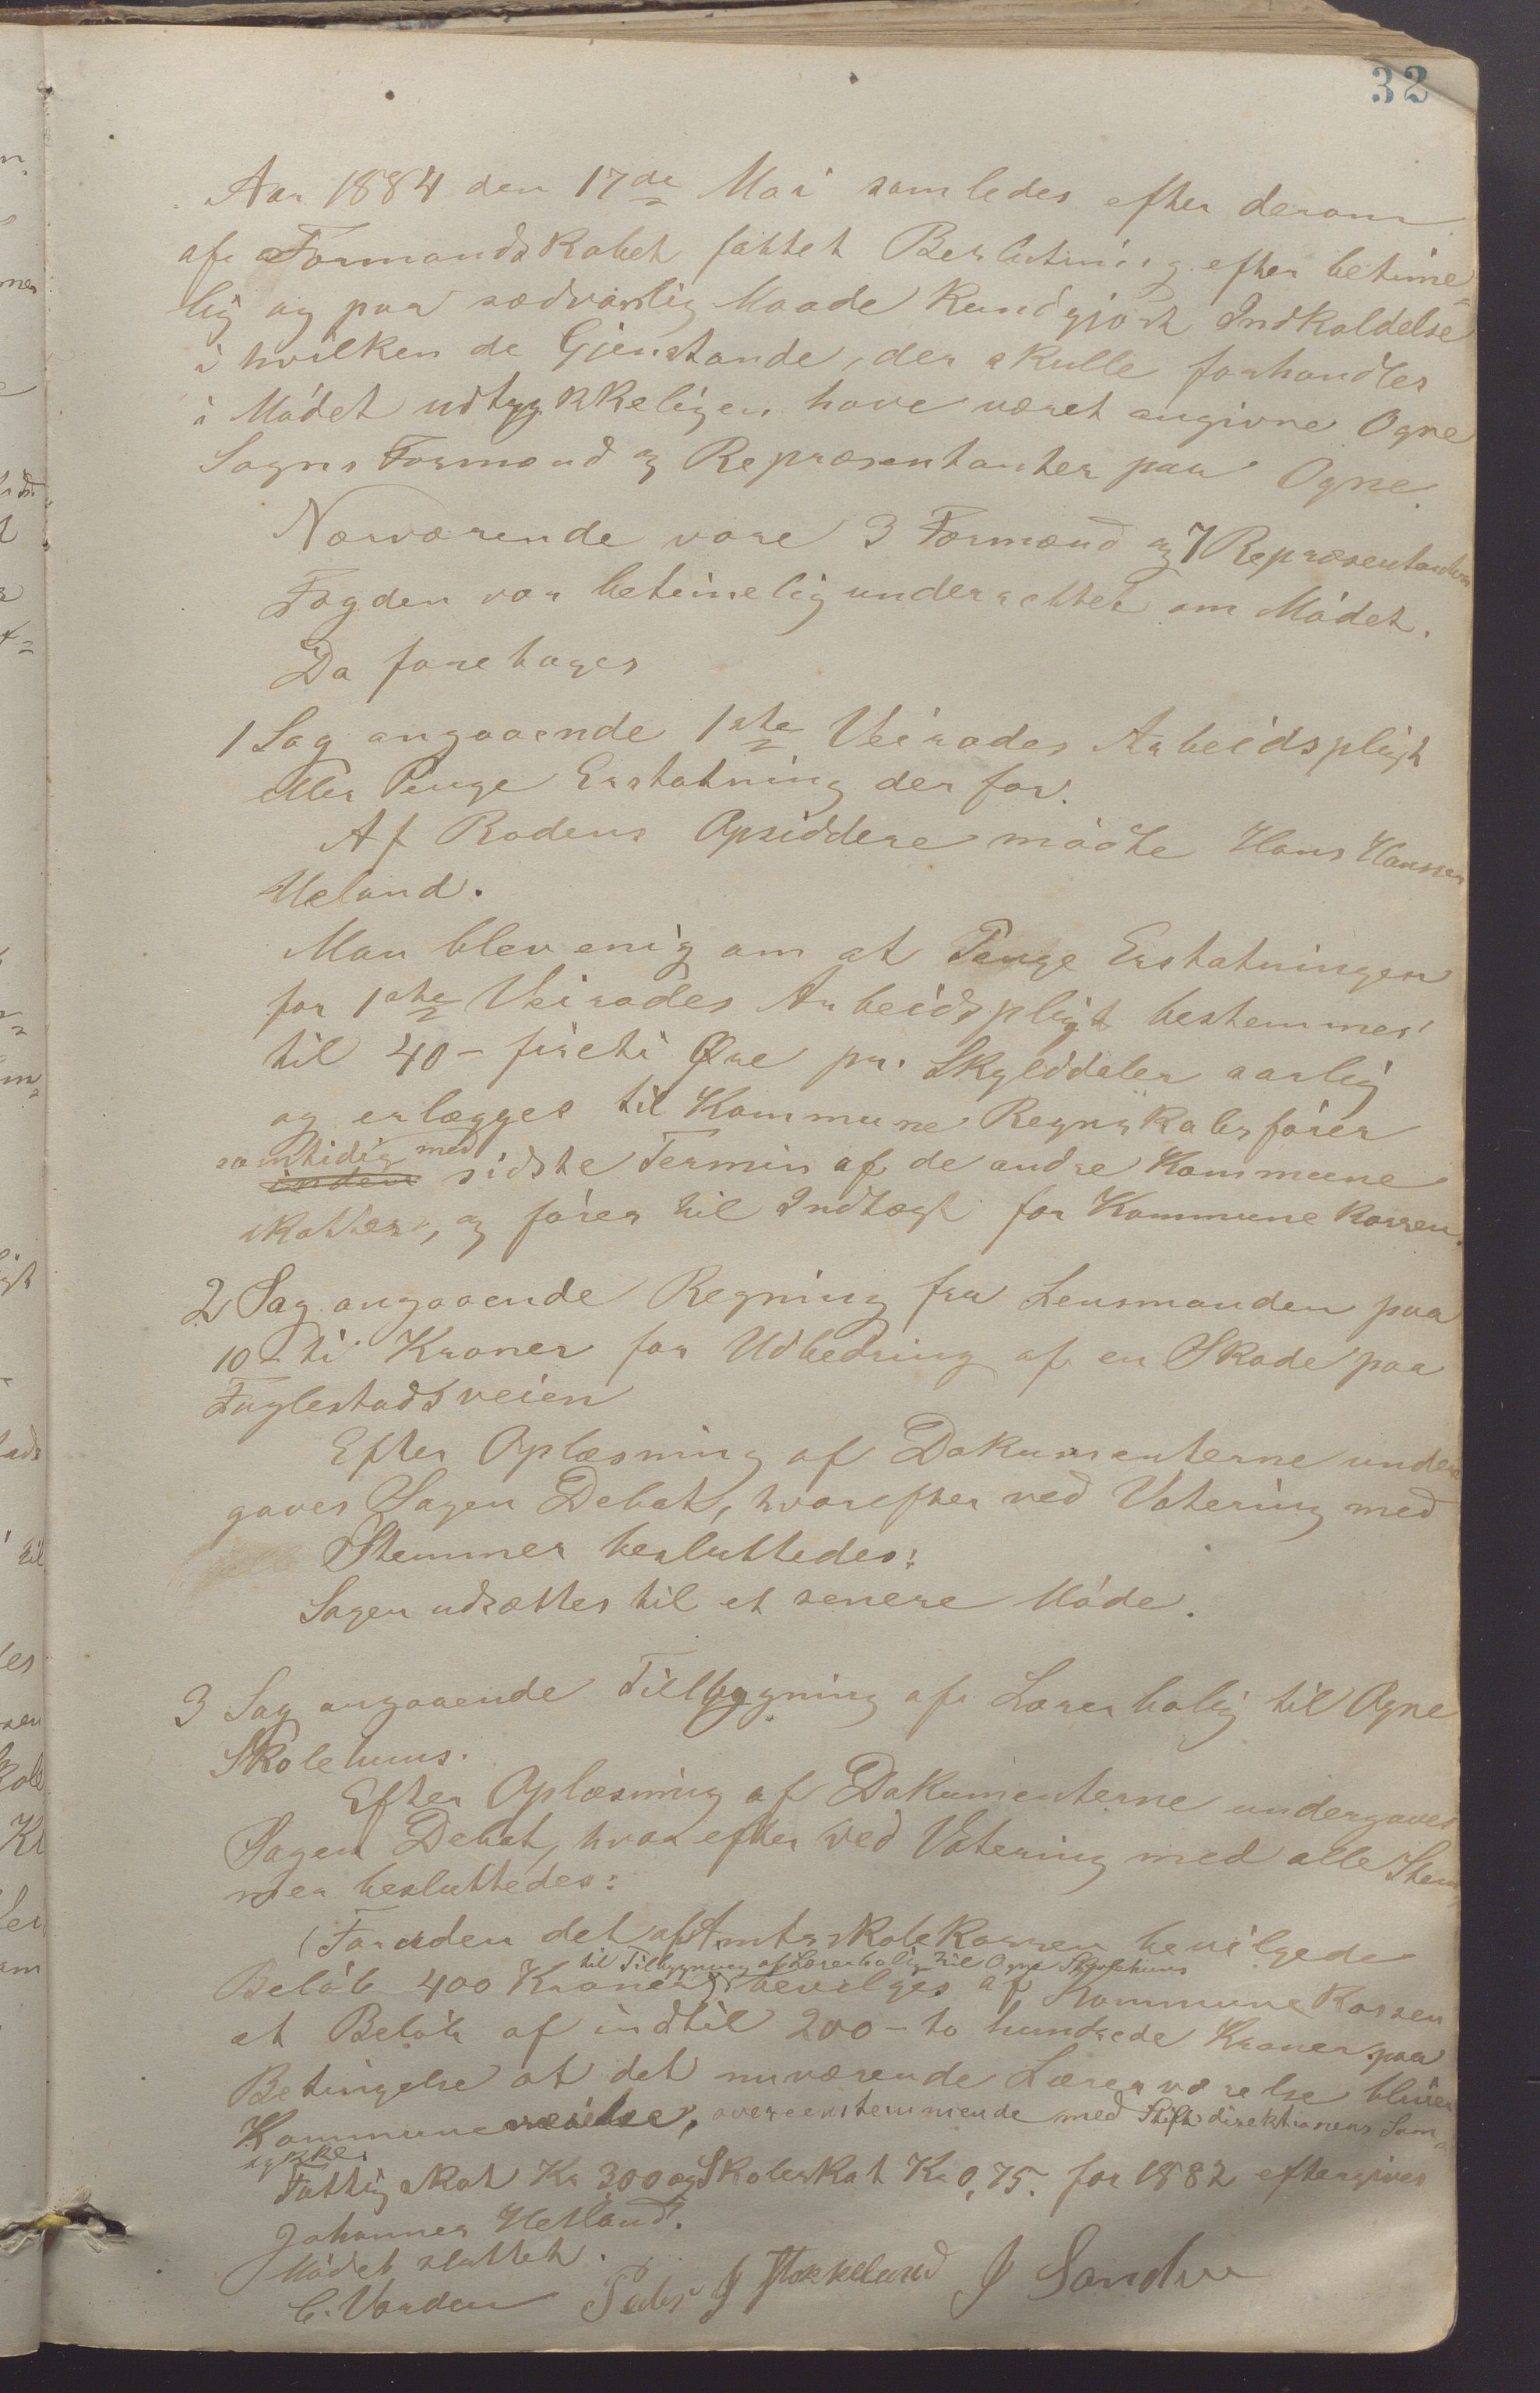 32
Aar 1884 den 17de Mai samledes efter derom
af Formandskabet fattet Beslutning efter betime-
lig og paa sædvanlig Maade Kundgjort Indkaldelse
i hvilken de Gjenstande, der skulle forhandles
i Mødet udtrykkeligen have været angivne Ogne
Sogns Formænd og Repræsentanter paa Ogne.
Nærværende vare 3 Formænd og 7 Repræsentanter
Fogden var betimelig underrettet om Mødet.
Da foretoges
1 Sag angaaende 1ste Veirodes Arbeidspligt
eller Penge Erstatning derfor.
Af Rodens Opsiddere mødte Hans Hanssen
Ueland.
Man blev enig om at Penge Erstatningen
for 1ste Veirodes Arbeidspligt bestemmes
til 40 - fireti Øre pr. Skylddaler aarlig
og erlægges til Kommune Regnskabsfører
samtidig med
inden sidste Termin af de andre Kommune
skatter, og føres til Indtægt for Kommune Kassen.
2 Sag angaaende Regning fra Lensmanden paa
10 - ti Kroner for Udbedring af en Skade paa
Fuglestadsveien
Efter Oplæsning af Dokumenterne under
gaves Sagen Debat, hvorefter ved Votering med
Stemmer besluttedes:
Sagen udsættes til et senere Møde.
3 Sag angaaende Tilbygning af Lærerbolig til Ogne
Skolehuus.
Efter Oplæsning af Dokumenterne undergaves
Sagen Debat, hvorefter ved Votering med alle Stem-
mer besluttedes:
(Foruden det af Amtsskolekassen bevilgede
til Tilbygning af Lærerbolig til Ogne Skolehuus
Beløb 400 Kroner) bevilges af Kommune Kassen
et Beløb af indtil 200 - to hundrede Kroner paa
Betingelse at det nuværende Lærerværelse bliver
Kommuneværelse, overeenstemmende med Stiftsdirektionens Sam-
tykke.
Fattigskat Kr 3,00 og Skoleskat Kr 0,75. for 1882 eftergives
Johannes Hetland.
Mødet sluttet.
C. Varden Peder J Stokkeland J Sandve